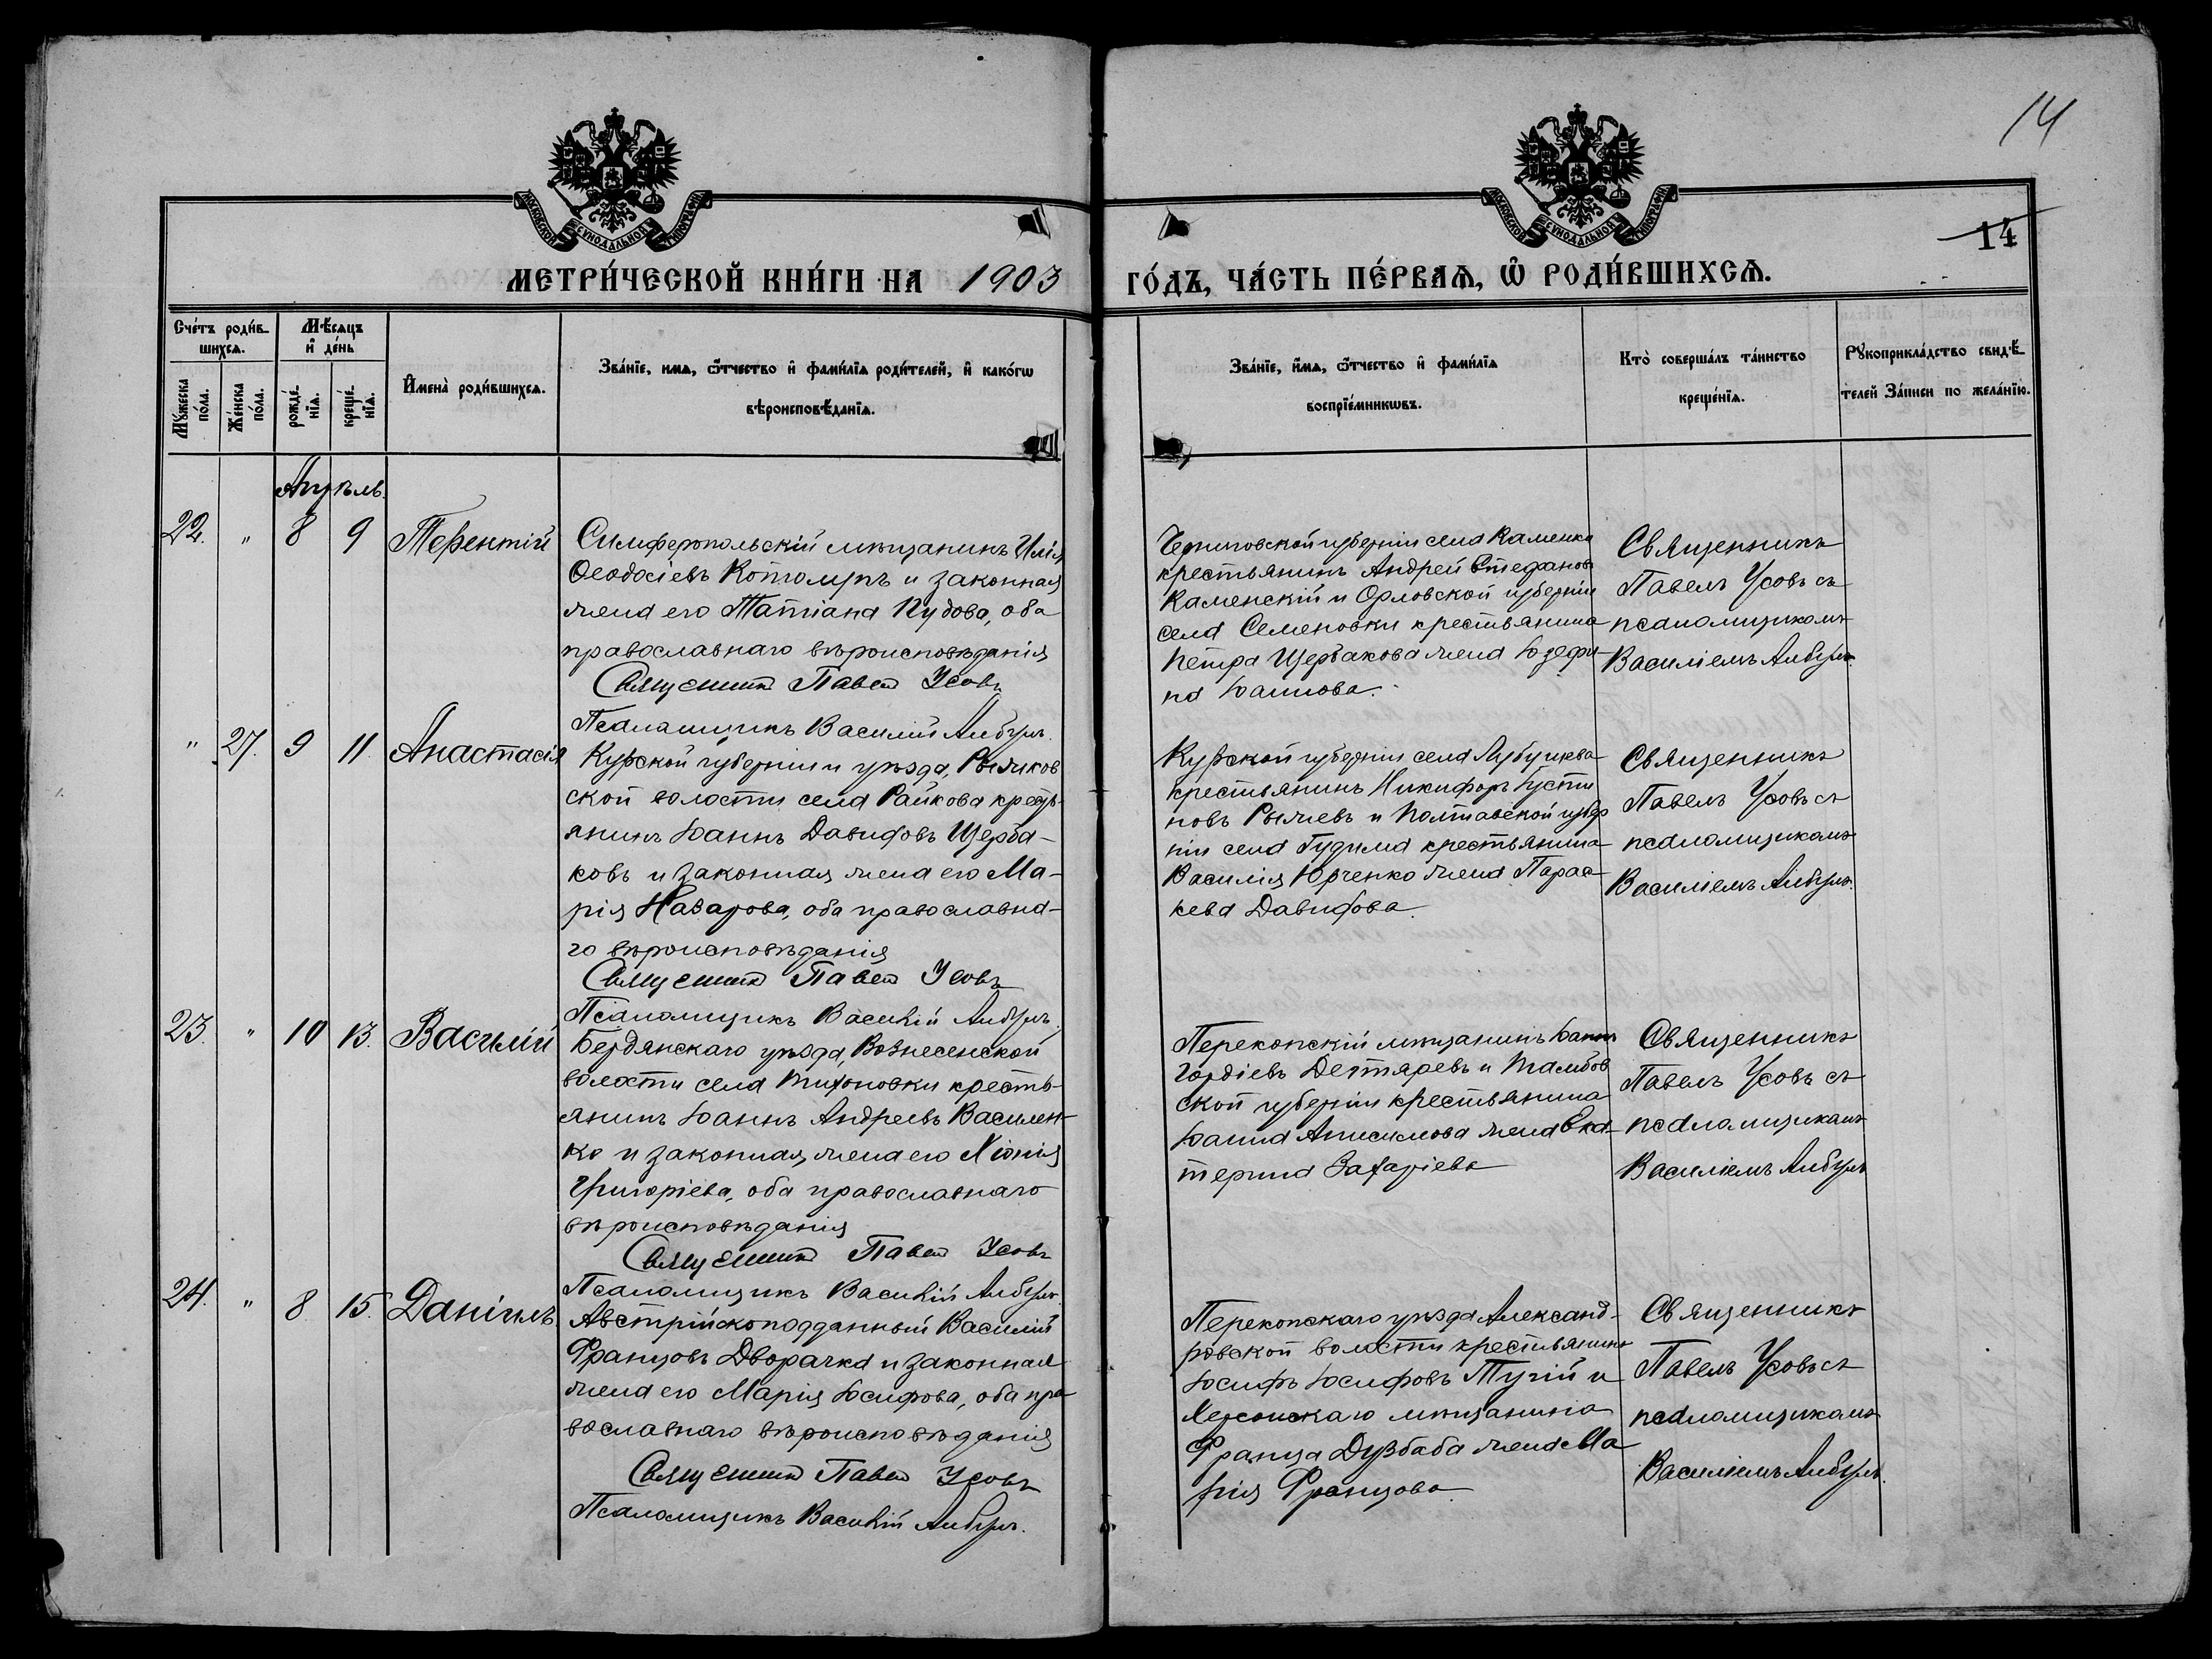 14
МОСКОВСКОЙ СѴНОДАЛЬНОЙ ТИПОГРАФІИ
МОСКОВСКОЙ СѴНОДАЛЬНОЙ ТИПОГРАФІИ
14
МЕТРИ́ЧЕСКОЙ КНИ́ГИ НА 1903 ГО́ДЪ, ЧА́СТЬ ПЕ́РВАѦ, Ѡ РОДИ́ВШИХСѦ.
Сче́тъ роди́в-
шихсѧ.
Мꙋ́жеска по́ла.
Же́нска по́ла.
Мѣ́сѧцъ
и҆ де́нь
рожде́нїѧ.
креще́нїѧ.
И҆мена̀ роди́вшихсѧ.
Зва́нїе, и҆мѧ, ѻ҆́тчество и҆ фами́лїѧ роди́телей, и҆ како́гѡ
вѣроисповѣ́данїѧ.
Зва́нїе, и҆́мѧ, ѻ҆́тчество и҆ фами́лїѧ
воспрїе́мникѡвъ.
Кто̀ соверша́лъ та́инство
креще́нїѧ.
Рꙋкоприкла́дство свидѣ́-
телей за́писи по жела́нїю.
Апрѣль.
22. " 8 9 Терентій
Симферопольскій мѣщанинъ Илія
Ѳеодосіевъ Котомупъ и законная
жена его Татіана Пудова, оба
православнаго вѣроисповѣданія
Священникъ Павелъ Усовъ
Псаломщикъ Василій
Черниговской губерніи села Каменка
крестьянинъ Андрей Стефановъ
Каменскій и Орловской губерніи
села Семеновки крестьянина
Петра Щербакова жена Іозефи-
на Іоаннова.
Священникъ
Павелъ Усовъ съ
псаломщикомъ
Василіемъ
" 27. 9 11 Анастасія
Курской губерніи и уѣзда, Рыжков
ской волости села Райкова кресть-
янинъ Іоаннъ Давидовъ Щерба-
ковъ и законная жена его Ма-
рія Назарова, оба православна-
го вѣроисповѣданія
Священникъ Павелъ Усовъ
Псаломщикъ Василій
Курской губерніи села
крестьянинъ Никифоръ Іусти
новъ Рыжевъ и Полтавской губер
ніи села Гудима крестьянина
Василія Юрченко жена Парас-
кева Давидова.
Священникъ
Павелъ Усовъ съ
псаломщикомъ
Василіемъ
23. " 10 13. Василій
Бердянскаго уѣзда, Вознесенской
волости села Тихоновки кресть-
янинъ Іоаннъ Андреевъ Василен-
ко и законная жена его Хіонія
Григоріева, оба православнаго
вѣроисповѣданія
Священникъ Павелъ Усовъ
Псаломщикъ Василій
Перекопскій мѣщанинъ Іоаннъ
Гордіевъ Дегтяревъ и Тамбов
ской губерніи крестьянина
Іоанна Анисимова жена Ека-
терина Захаріева
Священникъ
Павелъ Усовъ съ
псаломщикомъ
Василіемъ
24. " 8 15. Даніилъ
Австрійскоподданный Василій
Францовъ Дворачка и законная
жена его Марія Іосифова, оба пра
вославнаго вѣроисповѣданія
Священникъ Павелъ Усовъ
Псаломщикъ Василій
Перекопскаго уѣзда Александ-
ровской волости крестьянинъ
Іосифъ Іосифовъ и
Херсонскаго мѣщанина
Франца Дузбаба жена Ма
рія Францова
Священникъ
Павелъ Усовъ съ
псаломщикомъ
Василіемъ